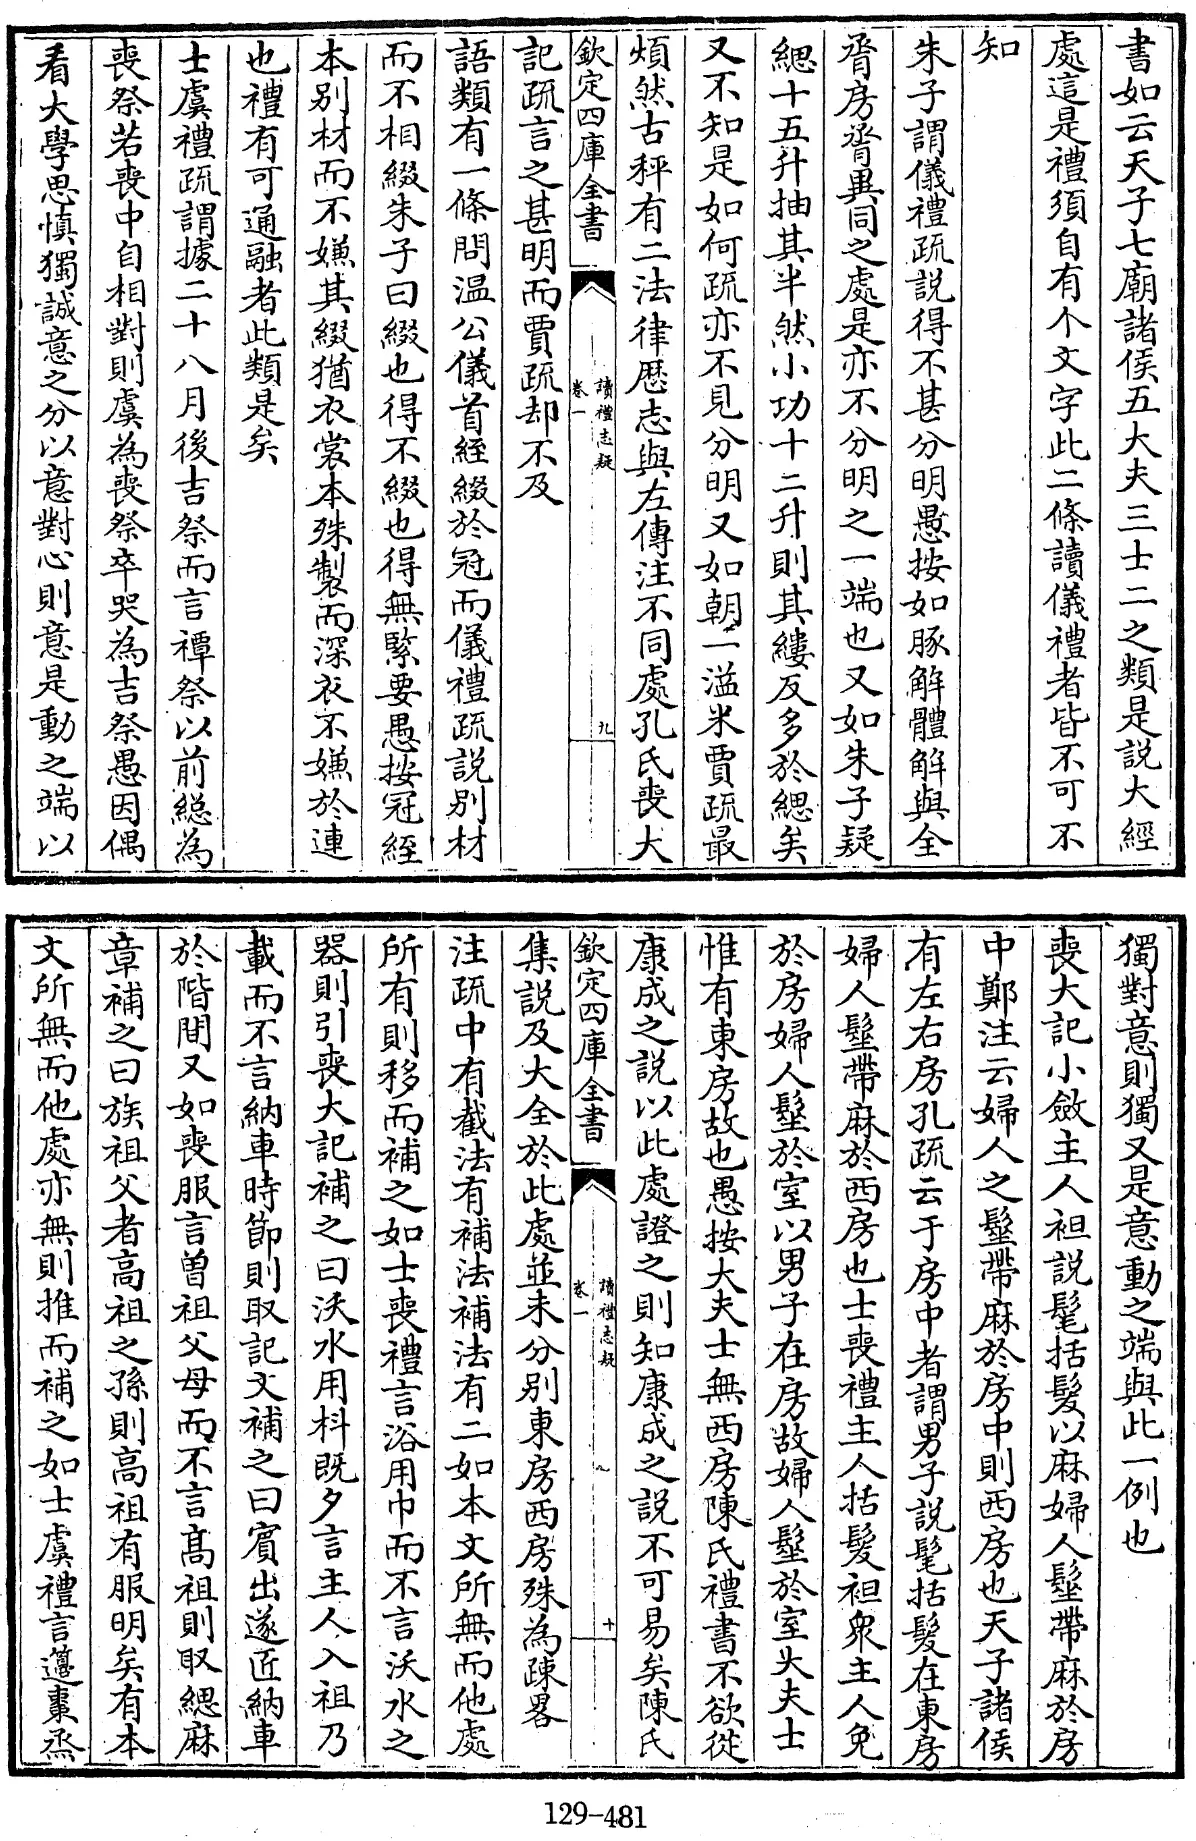 書如云天子七廟諸侯五大夫三士二之類是説大經
處這是禮須自有个文字此二條讀儀禮者皆不可不
知
朱子謂儀禮疏説得不甚分明愚按如豚解體解與全
脀房脀異同之處是亦不分明之一端也又如朱子疑
緦十五升抽其半然小功十二升則其縷反多於緦矣
又不知是如何疏亦不見分明又如朝一溢米賈疏最
煩然古秤有二法律厯志與左傳注不同處孔氏喪大
欽定四庫全書
讀禮志疑
卷一
九
記疏言之甚明而賈疏却不及
語類有一條問温公儀首絰綴於冠而儀禮疏説别材
而不相綴朱子曰綴也得不綴也得無緊要愚按冠絰
本别材而不嫌其綴猶衣裳本殊製而深衣不嫌於連
也禮有可通融者此類是矣
士虞禮疏謂據二十八月後吉祭而言禫祭以前総為
喪祭若喪中自相對則虞為喪祭卒哭為吉祭愚因偶
看大學思慎獨誠意之分以意對心則意是動之端以
獨對意則獨又是意動之端與此一例也
喪大記小斂主人袒説髦括髮以麻婦人髽帶麻於房
中鄭注云婦人之髽帶麻於房中則西房也天子諸侯
有左右房孔疏云于房中者謂男子説髦括髮在東房
婦人髽帶麻於西房也士喪禮主人括髮袒衆主人免
於房婦人髽於室以男子在房故婦人髽於室大夫士
惟有東房故也愚按大夫士無西房陳氏禮書不欲從
康成之説以此處證之則知康成之説不可易矣陳氏
欽定四庫全書
讀禮志疑
卷一
十
集説及大全於此處並未分别東房西房殊為疎畧
注疏中有截法有補法補法有二如本文所無而他處
所有則移而補之如士喪禮言浴用巾而不言沃水之
器則引喪大記補之曰沃水用枓既夕言主人入祖乃
載而不言納車時節則取記文補之曰賓出遂匠納車
於階間又如喪服言曽祖父母而不言髙祖則取緦麻
章補之曰族祖父者高祖之孫則高祖有服明矣有本
文所無而他處亦無則推而補之如士虞禮言籩棗烝
129-481